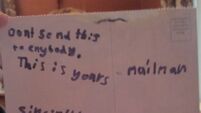 Dont send this
to anybody.
This is yours - mailman